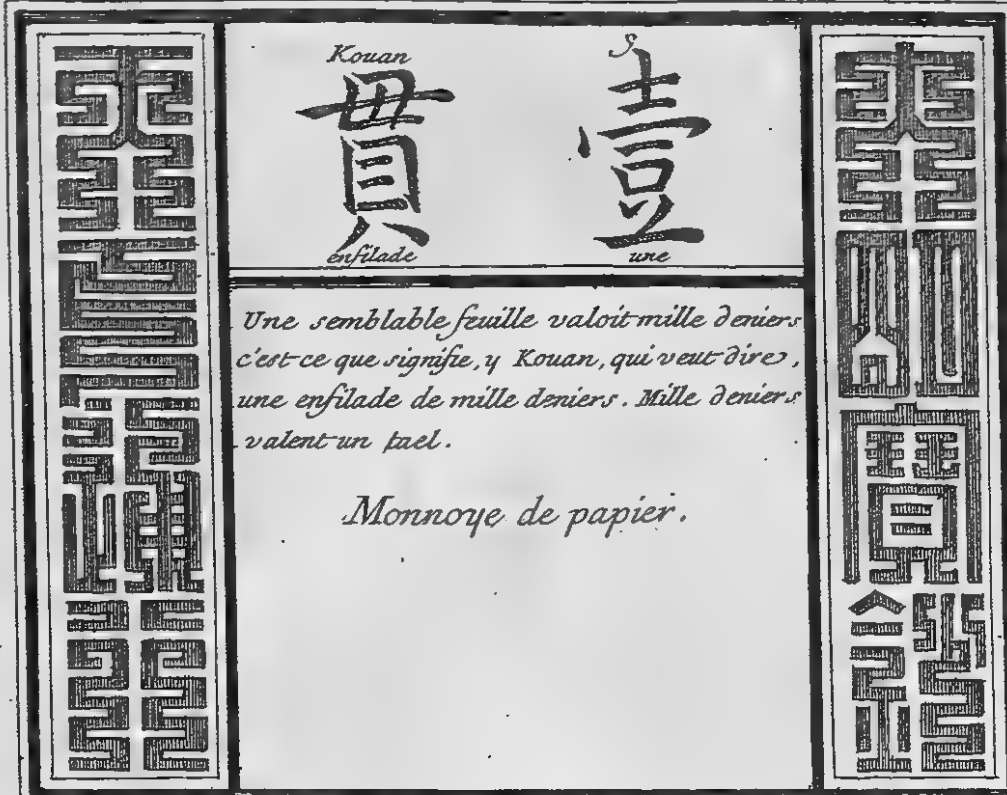 大明寶鈔
天下通行
Kouan
貫 壹
enfilade une
Une semblable feuille valoit mille deniers
c'est ce que signifie, y Kouan, qui veut dire,
une enfilade de mille deniers. Mille deniers
valent un tael.
Monnoye de papier.